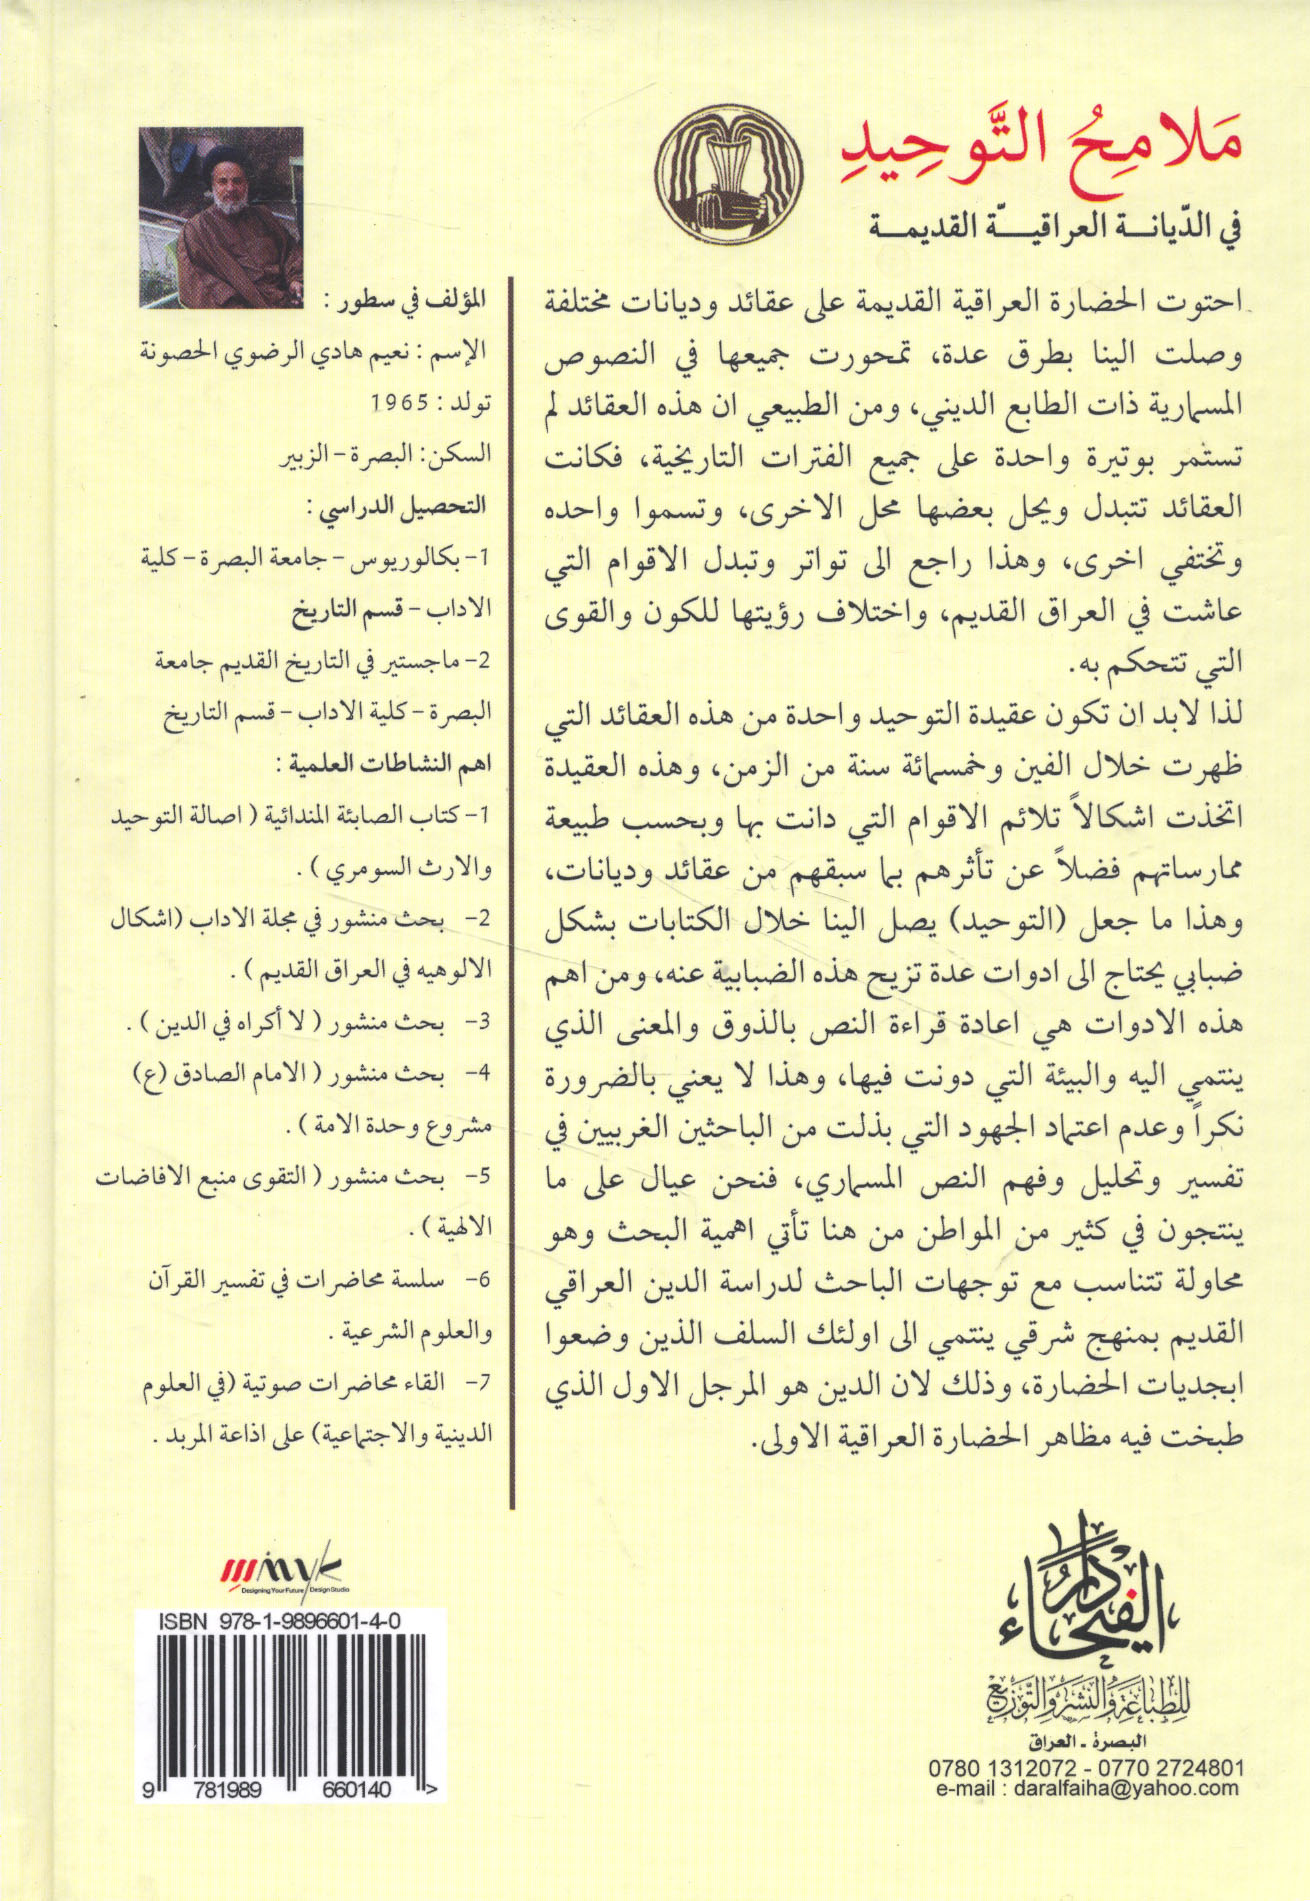 مَلامِحُ التَّوحِيدِ
في الدّيانة العراقيّة القديمة
احتوت الحضارة العراقية القديمة على عقائد وديانات مختلفة
وصلت الينا بطرق عدة، تمحورت جميعها في النصوص
المسمارية ذات الطابع الديني، ومن الطبيعي ان هذه العقائد لم
تستمر بوتيرة واحدة على جميع الفترات التاريخية، فكانت
العقائد تتبدل ويحل بعضها محل الاخرى، وتسموا واحده
وتختفي اخرى، وهذا راجع الى تواتر وتبدل الاقوام التي
عاشت في العراق القديم، واختلاف رؤيتها للكون والقوى
التي تتحكم به.
لذا لابد ان تكون عقيدة التوحيد واحدة من هذه العقائد التي
ظهرت خلال الفين وخمسمائة سنة من الزمن، وهذه العقيدة
اتخذت اشكالاً تلائم الاقوام التي دانت بها وبحسب طبيعة
ممارساتهم فضلاً عن تأثرهم بما سبقهم من عقائد وديانات،
وهذا ما جعل (التوحيد) يصل الينا خلال الكتابات بشكل
ضبابي يحتاج الى ادوات عدة تزيح هذه الضبابية عنه، ومن اهم
هذه الادوات هي اعادة قراءة النص بالذوق والمعنى الذي
ينتمي اليه والبيئة التي دونت فيها، وهذا لا يعني بالضرورة
نكراً وعدم اعتماد الجهود التي بذلت من الباحثين الغربيين في
تفسير وتحليل وفهم النص المسماري، فنحن عيال على ما
ينتجون في كثير من المواطن من هنا تأتي اهمية البحث وهو
محاولة تتناسب مع توجهات الباحث لدراسة الدين العراقي
القديم بمنهج شرقي ينتمي الى اولئك السلف الذين وضعوا
ابجديات الحضارة، وذلك لان الدين هو المرجل الاول الذي
طبخت فيه مظاهر الحضارة العراقية الاولى.
المؤلف في سطور :
الإسم : نعيم هادي الرضوي الحصونة
تولد : 1965
السكن: البصرة – الزبير
التحصيل الدراسي :
1- بكالوريوس – جامعة البصرة – كلية
الاداب – قسم التاريخ
2- ماجستير في التاريخ القديم جامعة
البصرة – كلية الاداب – قسم التاريخ
اهم النشاطات العلمية :
1- كتاب الصابئة المندائية ( اصالة التوحيد
والارث السومري ) .
2- بحث منشور في مجلة الاداب (اشكال
الالوهيه في العراق القديم ) .
3- بحث منشور ( لا أكراه في الدين ) .
4- بحث منشور ( الامام الصادق (ع)
مشروع وحدة الامة ) .
5- بحث منشور ( التقوى منبع الافاضات
الالهية ) .
6- سلسة محاضرات في تفسير القرآن
والعلوم الشرعية .
7- القاء محاضرات صوتية (في العلوم
الدينية والاجتماعية) على اذاعة المربد .
دار الفيحاء
للطباعة والنشر والتوزيع
البصرة - العراق
0780 1312072 - 0770 2724801
e-mail : daralfaiha@yahoo.com
Designing Your Future / Design Studio
ISBN 978-1-9896601-4-0
9 781989 660140 >